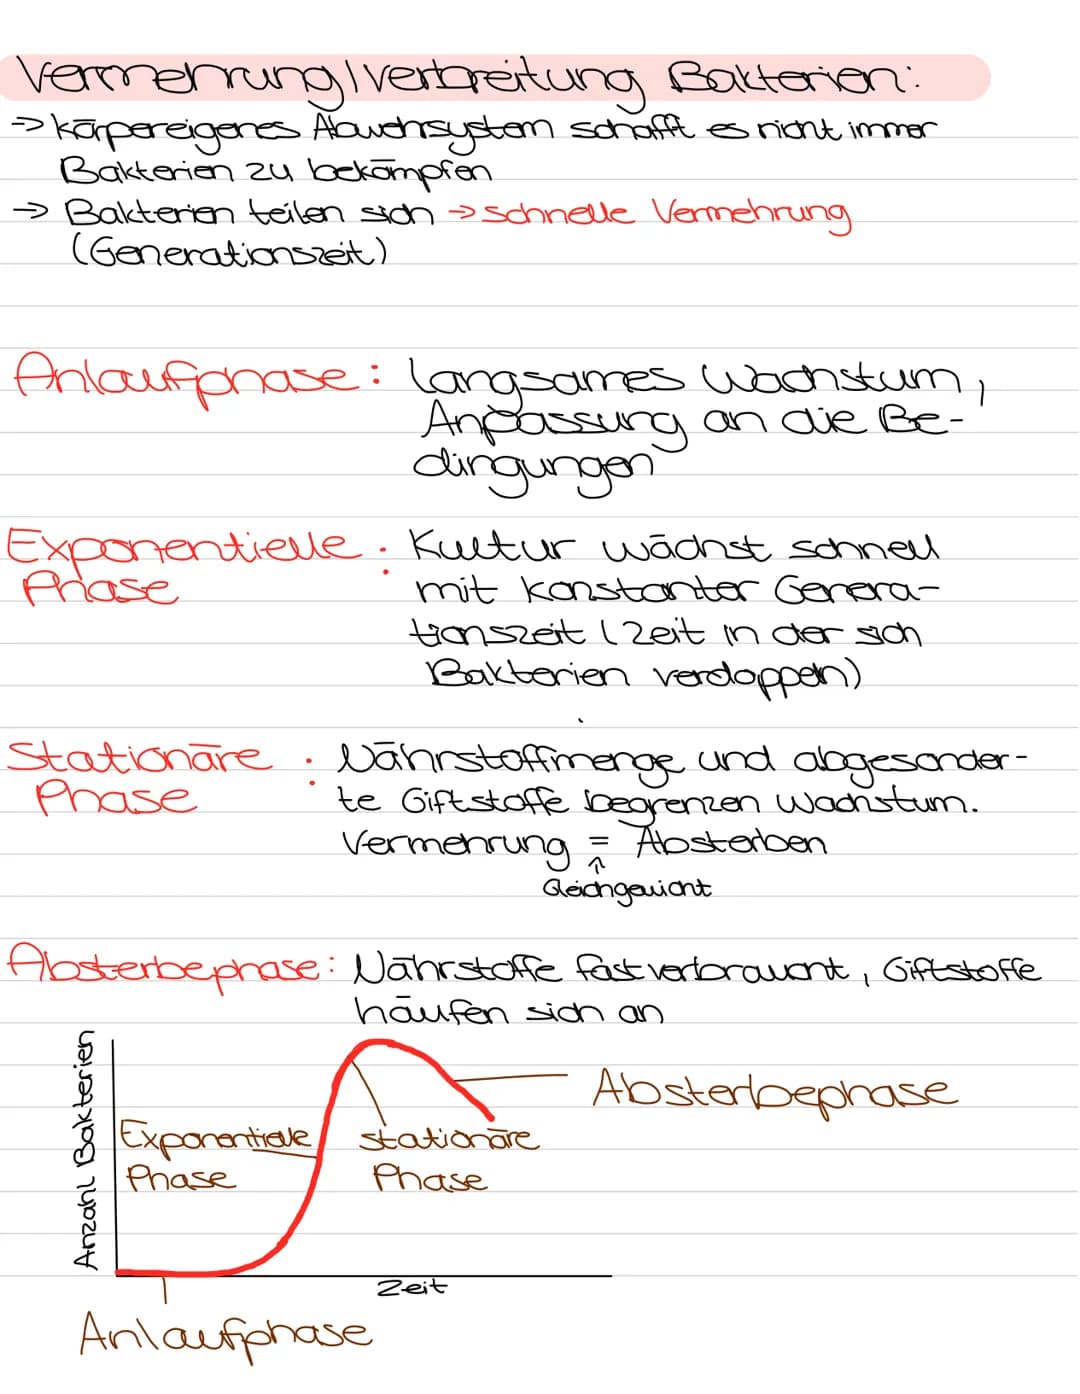 Vermehrung/Verbreitung Bakterien:
→ körpereigenes Abwehrsystem schafft es nicht immer
Bakterien zu bekämpfen
→ Bakterien teilen sich → schnelle Vermehrung
(Generationszeit)
Anlaufphase: langsames Wachstum,
Anpassung an die Be-
dingungen
Exponentielle : Kultur wächst schnell
Phase mit konstanter Genera-
tionszeit (Zeit in der sich
Bakterien verdoppeln)
Stationäre : Nährstoffmenge und abgesonder-
Phase te Giftstoffe begrenzen Wachstum.
Vermehrung = Absterben
↑
Gleichgewicht
Absterbephase: Nährstoffe fast verbraucht, Giftstoffe
häufen sich an
Anzahl Bakterien
Absterbephase
Exponentielle
Phase
stationäre
Phase
Zeit
Anlaufphase